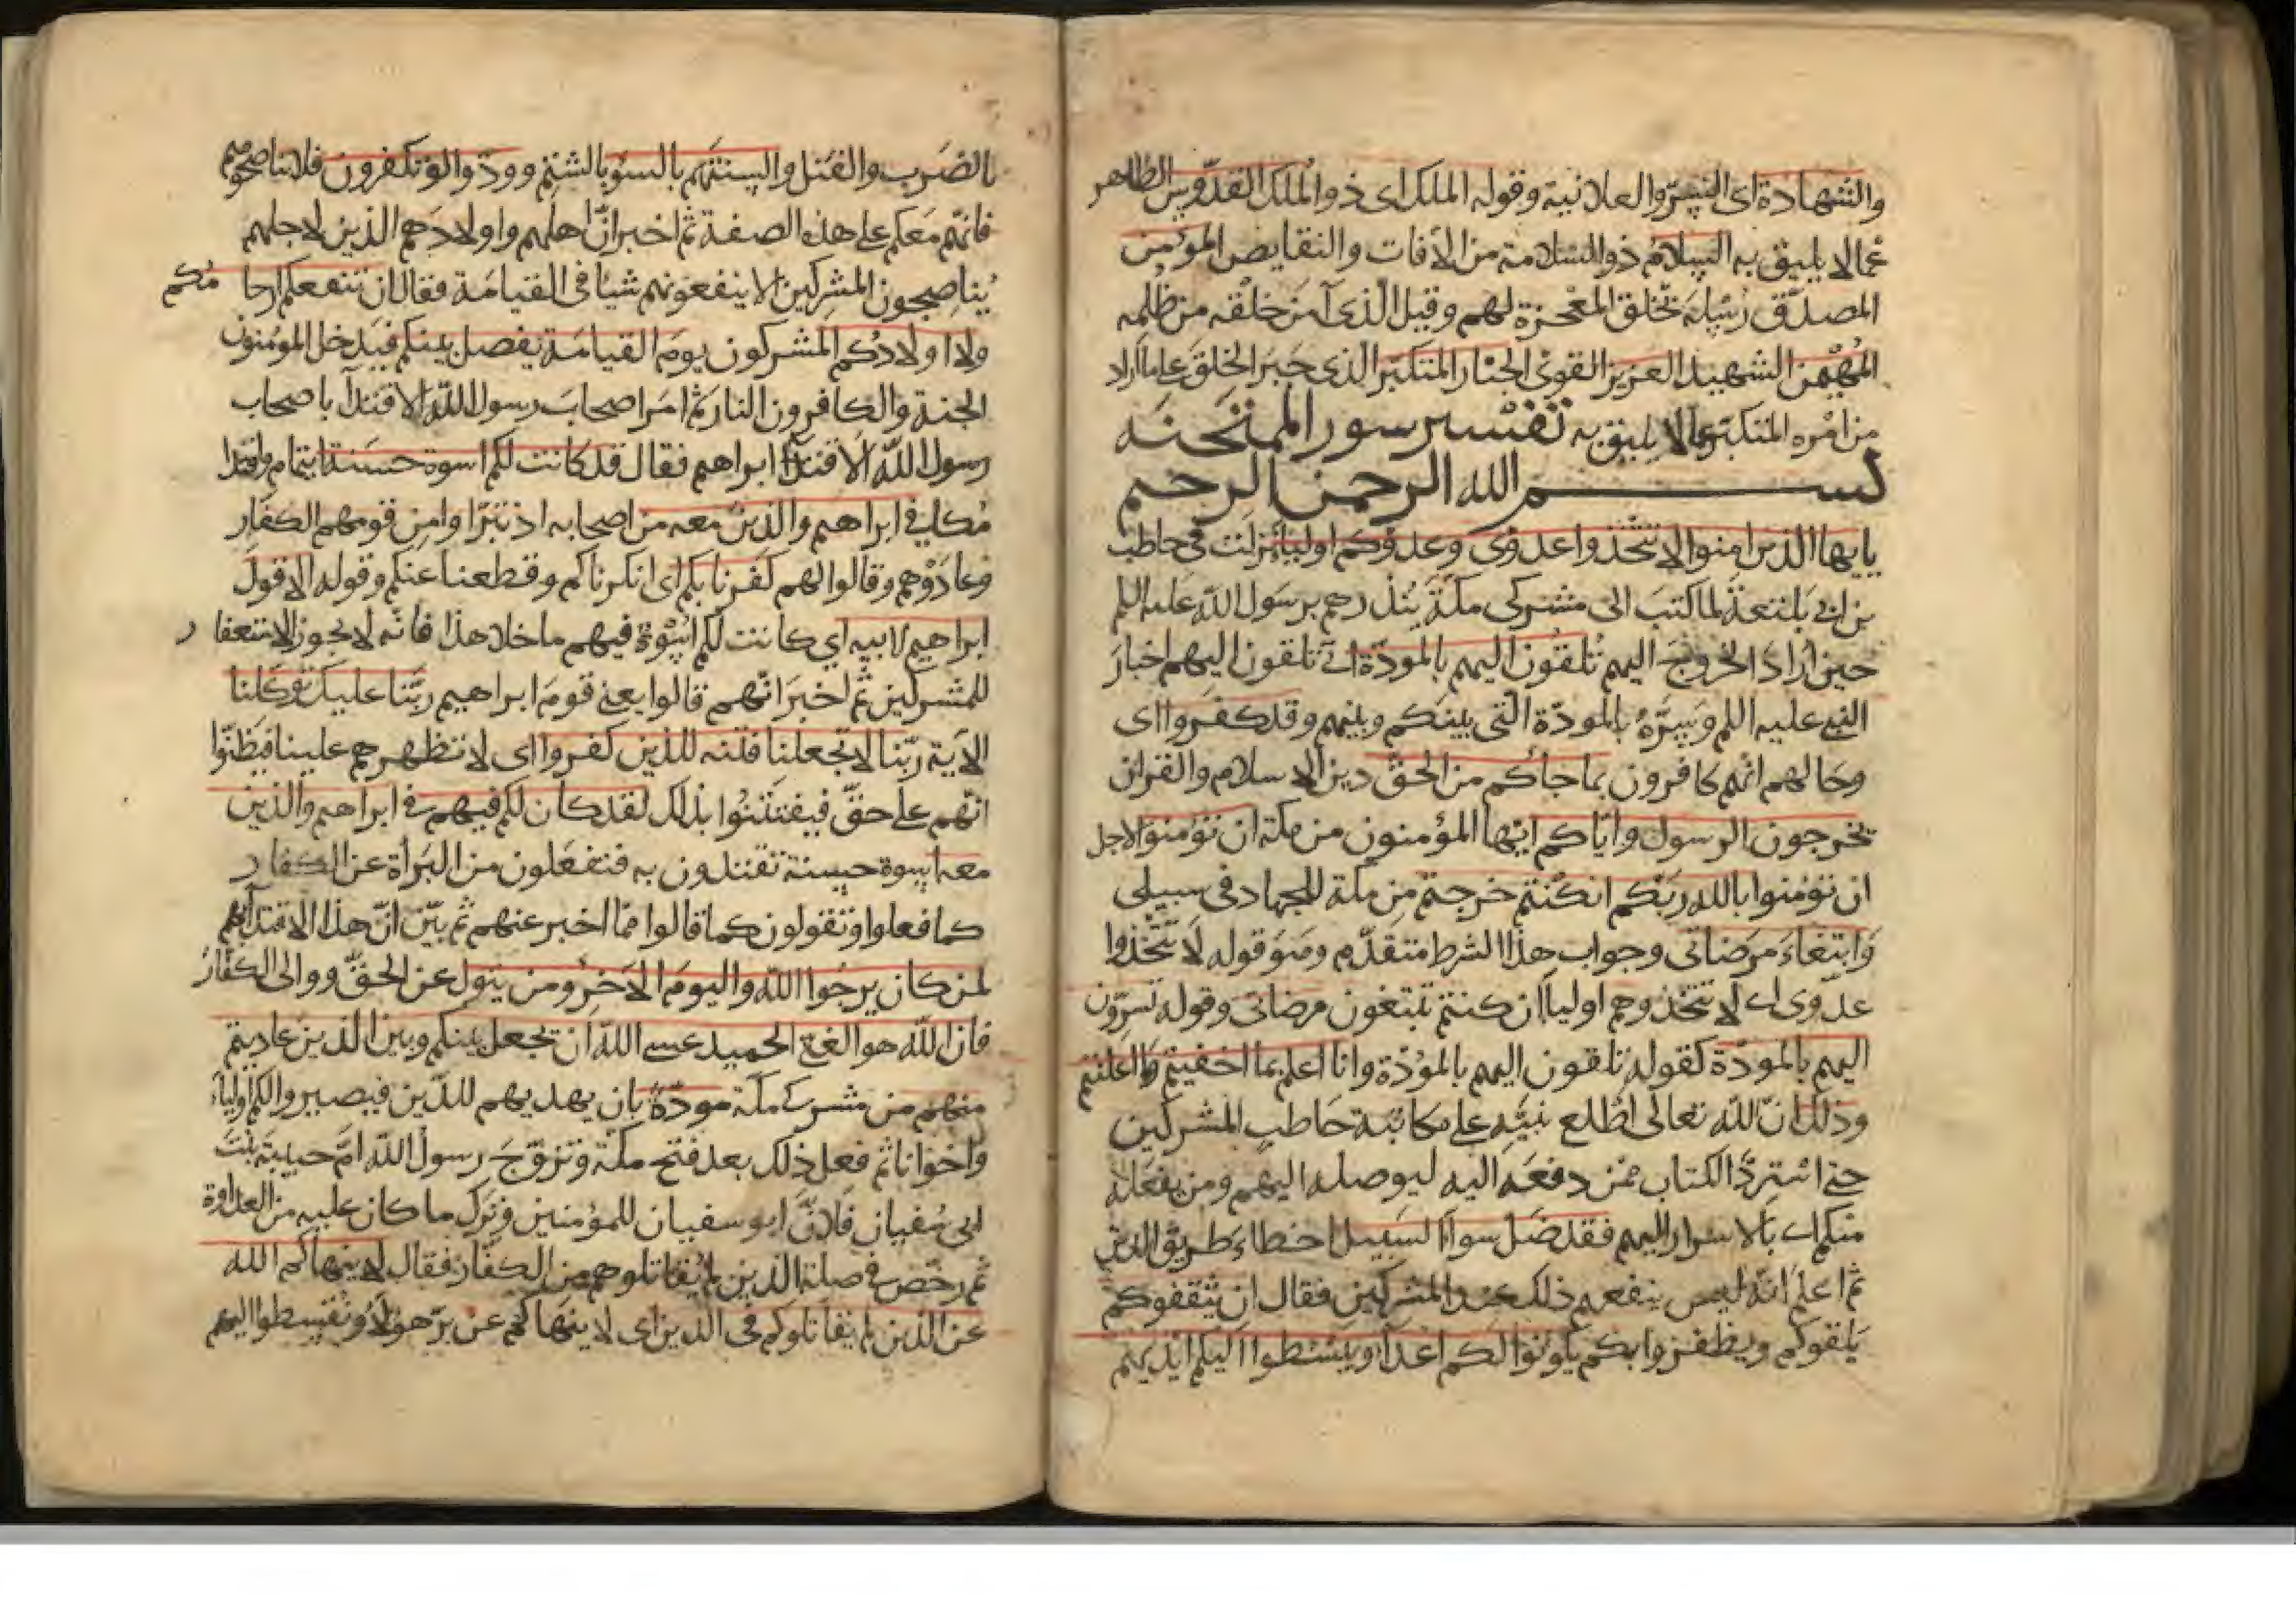 والشهادة اى السِّرّ والعلانية وقوله الملك اى ذو الملك القدّوس الطاهر
عما لا يليق به السلام ذو السّلامة من الآفات والنقايص المؤمن
المصدّق رسله بخلق المعجزة لهم وقيل الّذى آمن خلْقه من ظلمه
المهيمن الشهيد العزيز القوىّ الجبّار المتكبّر الذى جَبَر الخلقَ على ما اراد
من امْره المتكبّر عمالا يليق به تفسير سور الممتحنه
بســـم الله الرحمن الرحيم
يايها الذين امنوا لا تتّخذوا عدوّى وعدوّكم اوليا نزلت فى حاطب
بن ابى بلتعة لما كتب الى مشركى مكّة ينذرهم برسول الله عليه السلم
حين اراد الخروج اليهم تلقون اليهم بالمودّة اى تلقون اليهم اخبار
النبى عليه السلم وسِرَّهُ بالمودّة التى بينكم وبينهم وقد كفروا اى
وحالهم انّهم كافرون بما جأكم من الحقّ دين الاسلام والقران
يخرجون الرسول واياكم ايّها المؤمنون من مكة ان تؤمنوا لاجل
ان تؤمنوا بالله ربّكم ان كنتم خرجتم من مكة للجهاد فى سبيلى
وَابتغاءَ مرضاتى وجواب هذا الشرط متقدّم وهو قوله لا تتّخذوا
عدوّى اى لا تتّخذوهم اولياأ ان كنتم تبتغون مرضاتى وقوله تسرّون
اليهم بالمودّة كقوله تلقون اليهم بالمودّة وانا اعلم بما اخفيتم وما اعلنتم
وذلك انّ الله تعالى اطّلع نبيّه على مكاتبة حاطب للمشركين
حتى استردّ الكتاب ممّن دفعه اليه ليوصله اليهم ومن يفعله
منكم اى بالاسرار اليهم فقد ضلّ سواأ السبيل اخطاء طريق الدين
ثم اعلم انّه ليس ينفعهم ذلك عند المشركين فقال ان يثقفوكم
يلقوكم ويظفروا بكم يكونوا لكم اعدآأ ويبسطوا اليكم ايديهم
بالضرب والقتل والسنتهم بالسوء بالشتم وودّوا لو تكفرون فلا تناصحوهم
فانّهم معكم على هذه الصفة ثم اخبر انّ اهلهم واولادهم الذين لاجلهم
يُناصِحون المشركين لا ينفعونهم شيئا فى القيامة فقال لن تنفعكم ارحامُكم
ولا اولادُكم المشركون يوم القيامة يفصل بينكم فيدخل المؤمنون
الجنة والكافرون النار ثم امر اصحاب رسول الله الاقتدآ باصحاب
رسول الله الاقتدآ ابراهيم فقال قد كانت لكم اسوة حسنة ايتمام واقتدا
مُكم فى ابراهيم والذين معه من اصحابه اذ تبرّاوا من قومهم الكفار
وعادَوْهم وقالوا لهم كفرنا بكم اى انكرناكم وقطعنا عنكم وقوله الا قول
ابراهيم لابيه اي كانت لكم اسْوة فيهم ما خلا هذا فانّه لا يجوز الاستغفار
للمشركين ثم اخبر انّهم قالوا يعنى قوم ابراهيم ربّنا عليك توكلنا
الآية ربّنا لا تجعلنا فتنه للذين كفروا اى لا تظهرهم علينا فيظنّوا
انّهم على حقّ فيفتتنوا بذلك لقد كان لكم فيهم فى ابراهيم والذين
معه اسوة حسنة تقتدون به فتفعلون من البراة عن الكفار
كما فعلوا وتقولون كما قالوا ممّا اخبر عنهم ثم بيّن انّ هذا الاقتدآ بهم
لمن كان يرجُوا الله واليوم الآخر ومن يتول عن الحقّ ووالى الكفّار
فان الله هو الغنى الحميد عسى الله ان يجعل بينكم وبين الذين عاديتم
منهم من مشركى مكّة مودّةً بان يهديهم للدّين فيصيروا لكم اولياء
واخوانا ثم فعل ذلك بعد فتح مكة وتزوّجَ رسول الله امّ حبيبة بنت
ابى سُفيان فلانَ ابو سفيان للمؤمنين وترك ما كان عليه من العداوة
ثم رخّص فى صلة الذين لم يُقاتلوهم من الكفّار فقال لا ينهاكم الله
عن الذين لم يقاتلوكم فى الدين اى لا ينهاكم عن برّ هؤلآء وتقسطوا اليهم